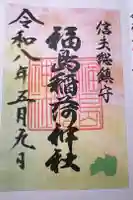 信夫総鎮守
福島稲荷神社
令和八年五月元日